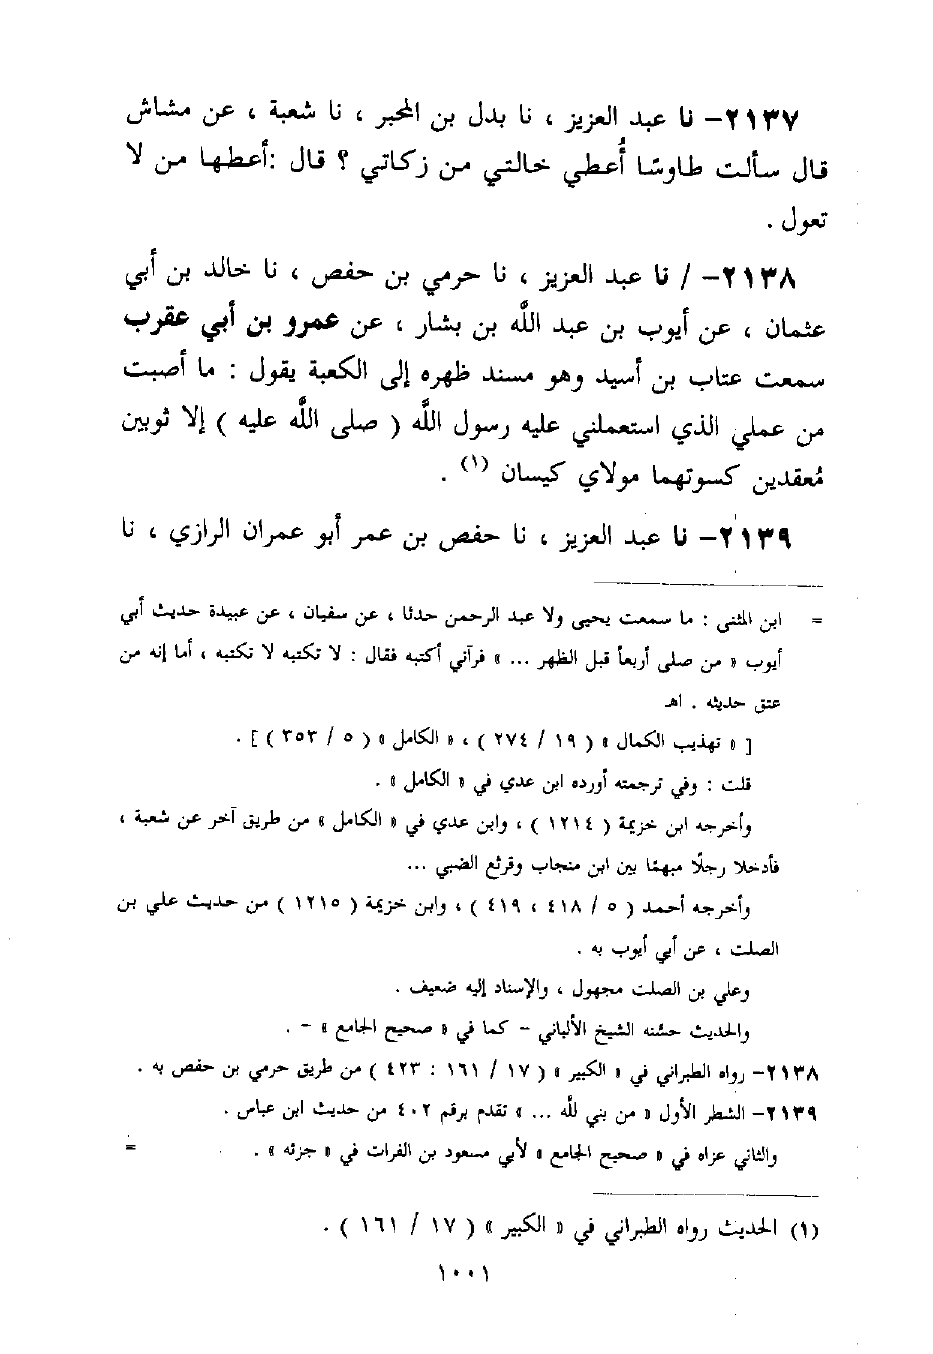 ٢١٣٧- نا عبد العزيز ، نا بدل بن المحبر ، نا شعبة ، عن مشاش
قال سألت طاوسًا أُعطي خالتي من زكاتي ؟ قال :أعطها من لا
تعول .
٢١٣٨- / نا عبد العزيز ، نا حرمي بن حفص ، نا خالد بن أبي
عثمان ، عن أيوب بن عبد اللَّه بن بشار ، عن عمرو بن أبي عقرب
سمعت عتاب بن أسيد وهو مسند ظهره إلى الكعبة يقول : ما أصبت
من عملي الذي استعملني عليه رسول اللَّه ( صلى اللَّه عليه ) إلا ثوبين
مُعقدين كسوتهما مولاي كيسان (١) .
٢١٣٩- نا عبد العزيز ، نا حفص بن عمر أبو عمران الرازي ، نا
= ابن المثنى : ما سمعت يحيى ولا عبد الرحمن حدثا ، عن سفيان ، عن عبيدة حديث أبي
أيوب « من صلى أربعاً قبل الظهر ... » فرآني أكتبه فقال : لا تكتبه لا تكتبه ، أما إنه من
عتق حديثه . اهـ
[ « تهذيب الكمال » ( ١٩ / ٢٧٤ ) ، « الكامل » ( ٥ / ٣٥٣ ) ] .
قلت : وفي ترجمته أورده ابن عدي في « الكامل » .
وأخرجه ابن خزيمة ( ١٢١٤ ) ، وابن عدي في « الكامل » من طريق آخر عن شعبة ،
فأدخلا رجلًا مبهمًا بين ابن منجاب وقرثع الضبي ...
وأخرجه أحمد ( ٥ / ٤١٨ ، ٤١٩ ) ، وابن خزيمة ( ١٢١٥ ) من حديث علي بن
الصلت ، عن أبي أيوب به .
وعلي بن الصلت مجهول ، والإسناد إليه ضعيف .
والحديث حسَّنه الشيخ الألباني - كما في « صحيح الجامع » - .
٢١٣٨- رواه الطبراني في « الكبير » ( ١٧ / ١٦١ : ٤٢٣ ) من طريق حرمي بن حفص به .
٢١٣٩- الشطر الأول « من بني للَّه ... » تقدم برقم ٤٠٢ من حديث ابن عباس .
والثاني عزاه في « صحيح الجامع » لأبي مسعود بن الفرات في « جزئه » . =
(١) الحديث رواه الطبراني في « الكبير » ( ١٧ / ١٦١ ) .
١٠٠١